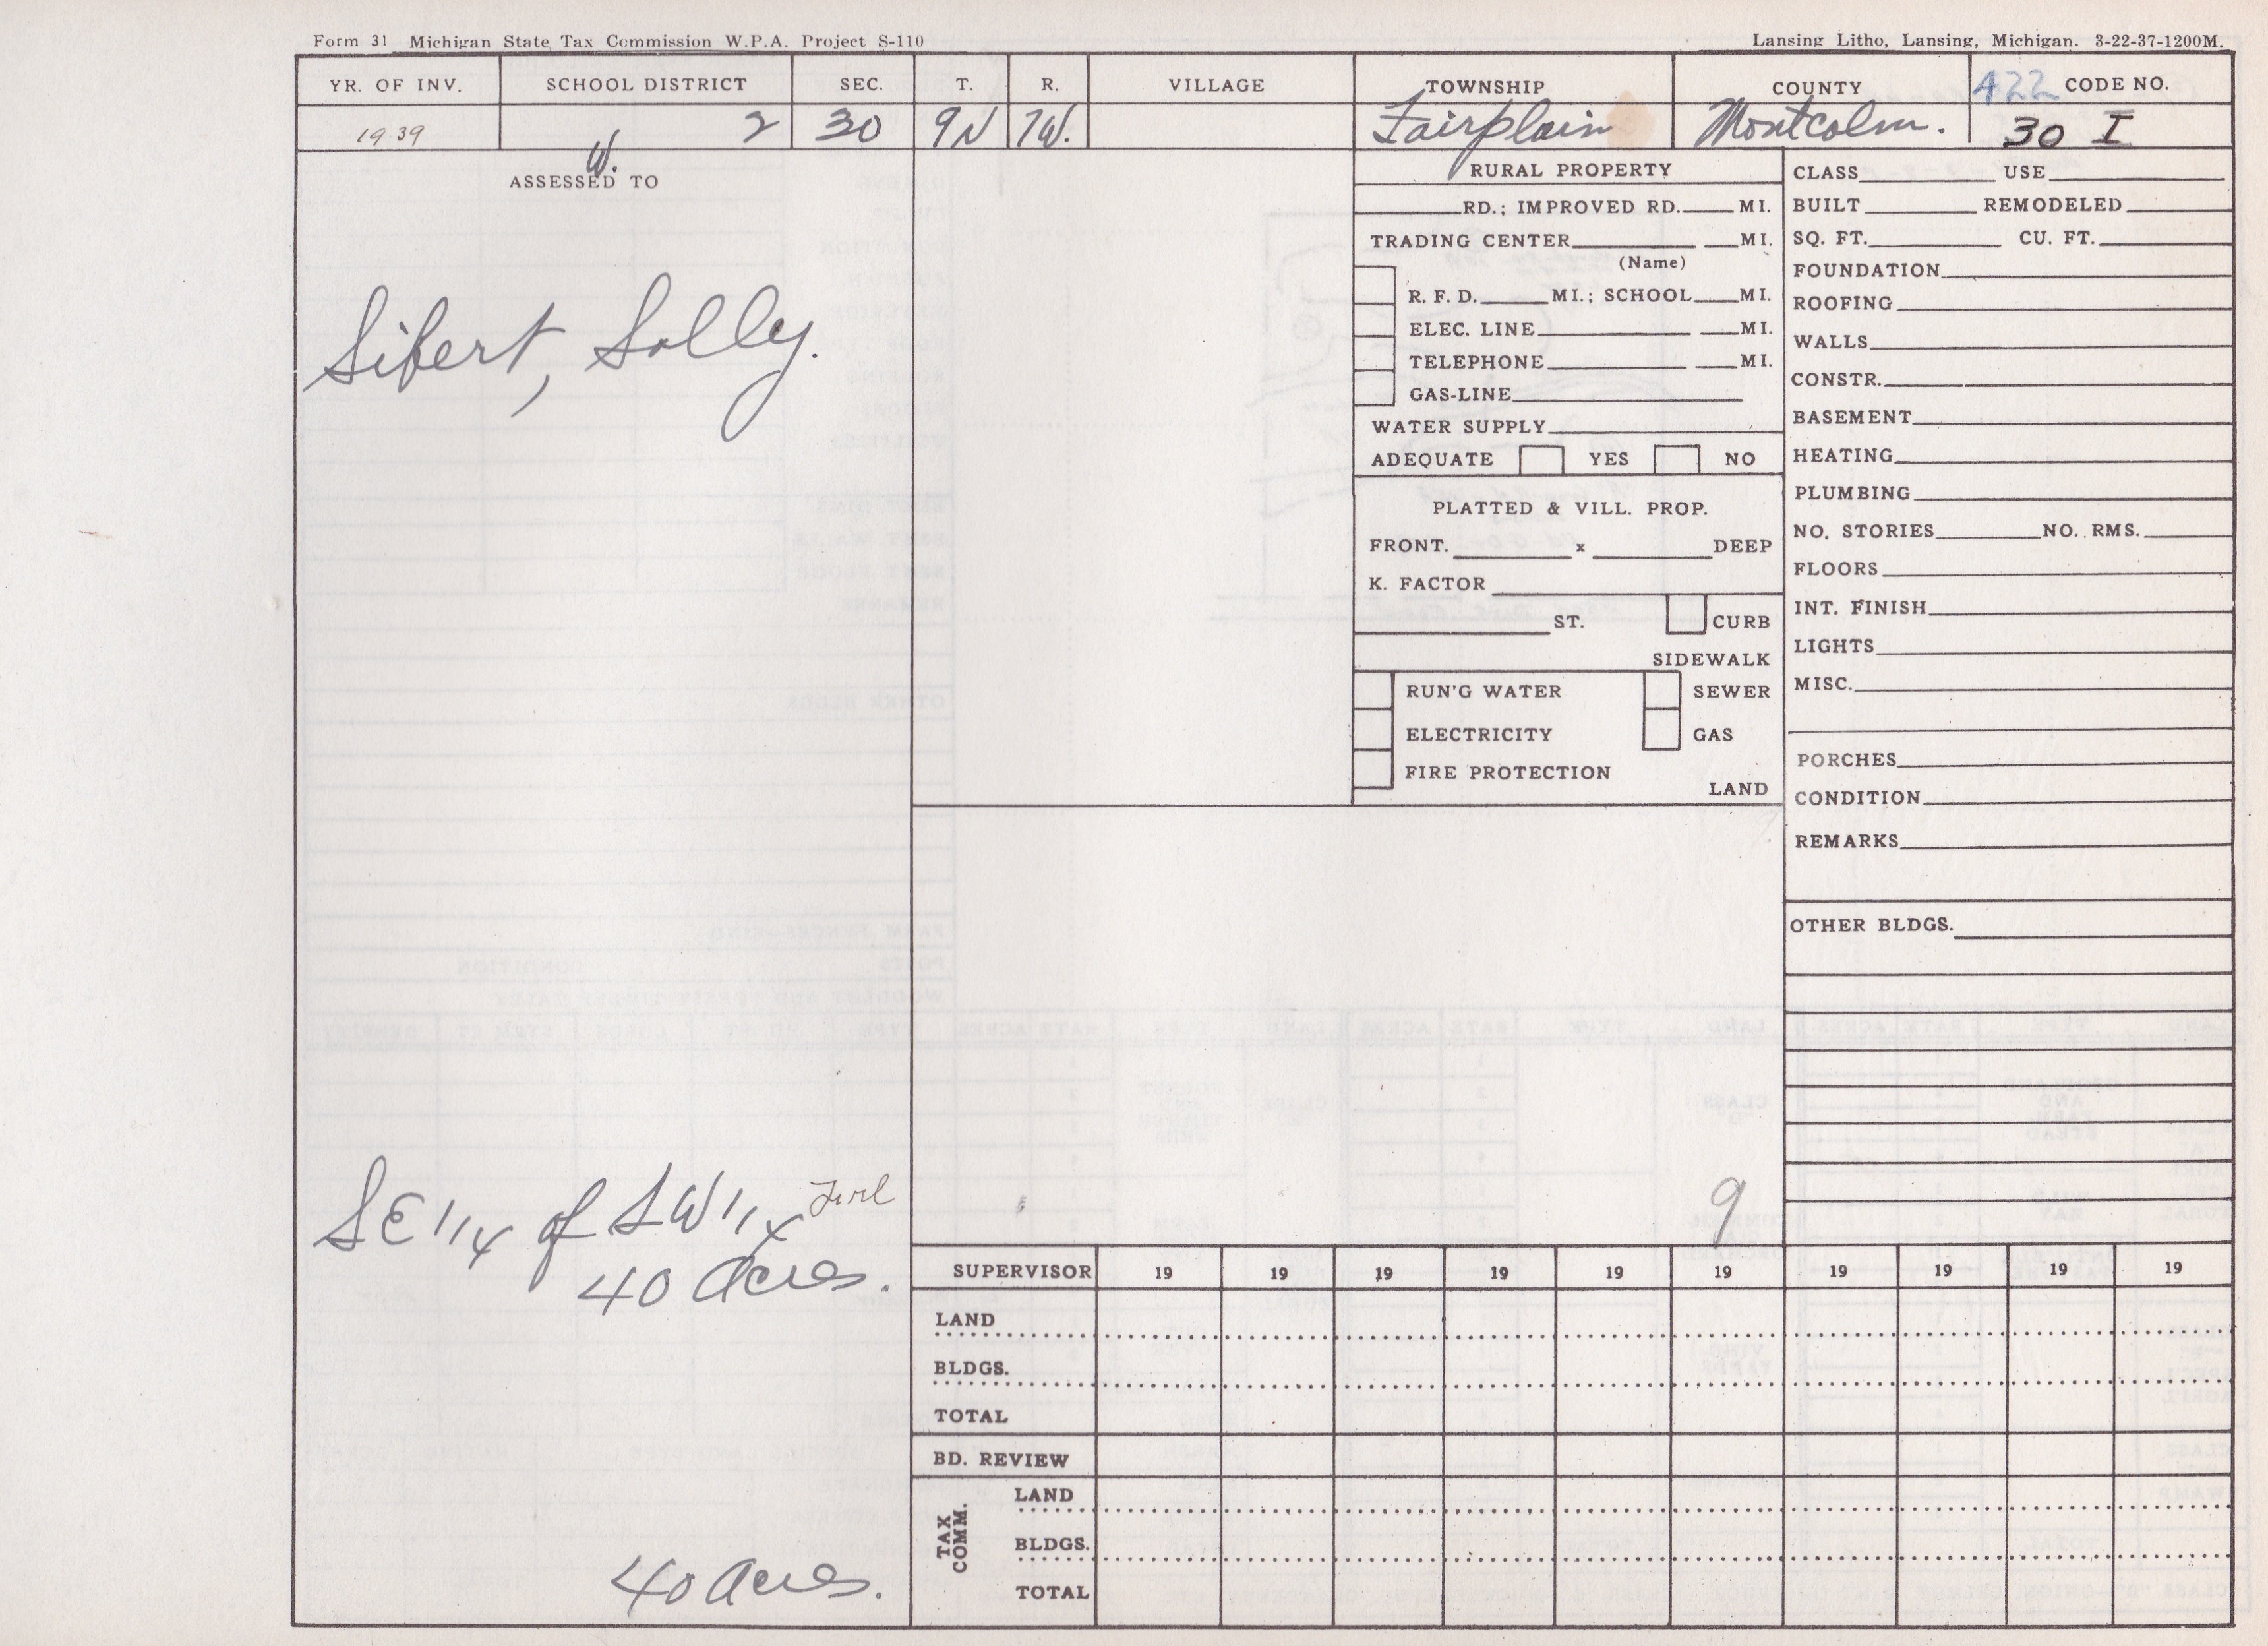 Form 31 Michigan State Tax Commission W.P.A. Project S-110
Lansing Litho, Lansing, Michigan. 3-22-37-1200M.
YR. OF INV. SCHOOL DISTRICT SEC. T. R. VILLAGE TOWNSHIP COUNTY 422 CODE NO.
1939 2 30 9N 7W. Fairplain Montcalm. 30 I
W.
ASSESSED TO
Sibert, Solly.
SE 1/4 of SW 1/4
40 Acres.
40 Acres.
RURAL PROPERTY
RD.; IMPROVED RD. MI.
TRADING CENTER MI.
(Name)
R. F. D. MI.; SCHOOL MI.
ELEC. LINE MI.
TELEPHONE MI.
GAS-LINE
WATER SUPPLY
ADEQUATE YES NO
PLATTED & VILL. PROP.
FRONT. x DEEP
K. FACTOR
ST. CURB
SIDEWALK
RUN'G WATER SEWER
ELECTRICITY GAS
FIRE PROTECTION
LAND
9
CLASS USE
BUILT REMODELED
SQ. FT. CU. FT.
FOUNDATION
ROOFING
WALLS
CONSTR.
BASEMENT
HEATING
PLUMBING
NO. STORIES NO. RMS.
FLOORS
INT. FINISH
LIGHTS
MISC.
PORCHES
CONDITION
REMARKS
OTHER BLDGS.
SUPERVISOR 19 19 19 19 19 19 19 19 19 19
LAND
BLDGS.
TOTAL
BD. REVIEW
TAX COMM.
LAND
BLDGS.
TOTAL